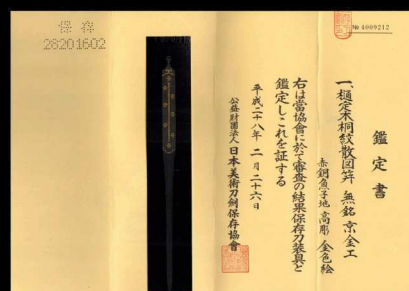 保存
28201602
№ 4009212
鑑定書
一、樋定木桐紋散図笄 無銘 京金工
赤銅魚子地 高彫 金色絵
右は當協會に於て審査の結果保存刀装具と
鑑定しこれを証する
平成二十八年 二月二十六日
公益財團法人 日本美術刀劍保存協會